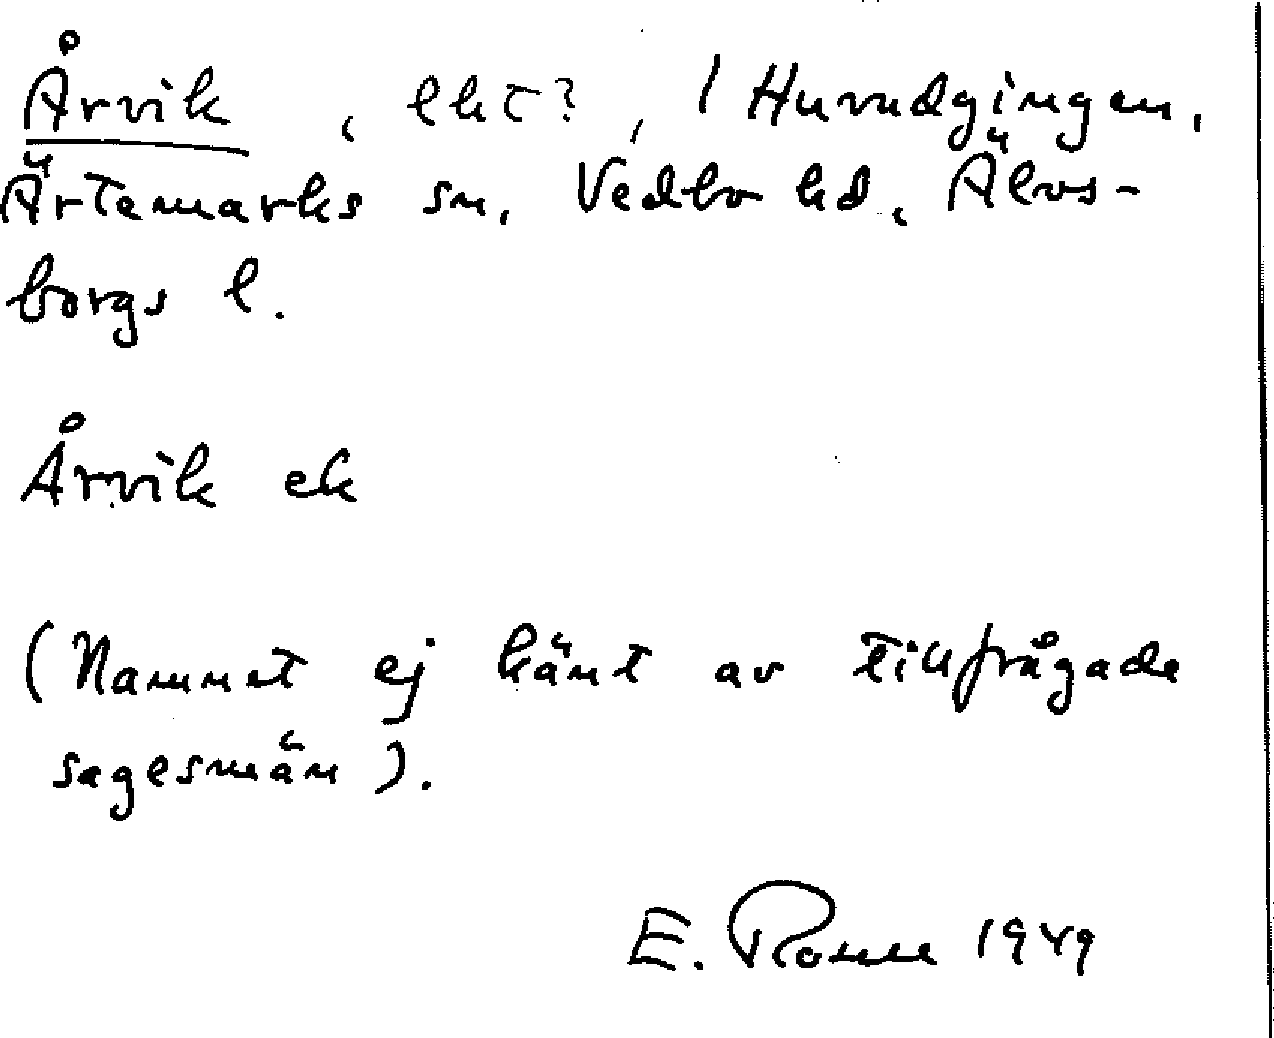 Årvik, lht?, / Huvudgingen,
Ärtemarks sn, Vedbo hd, Älvs-
borgs l.
Årvik ek
(Namnet ej känt av tillfrågade
sagesmän).
E. 1949